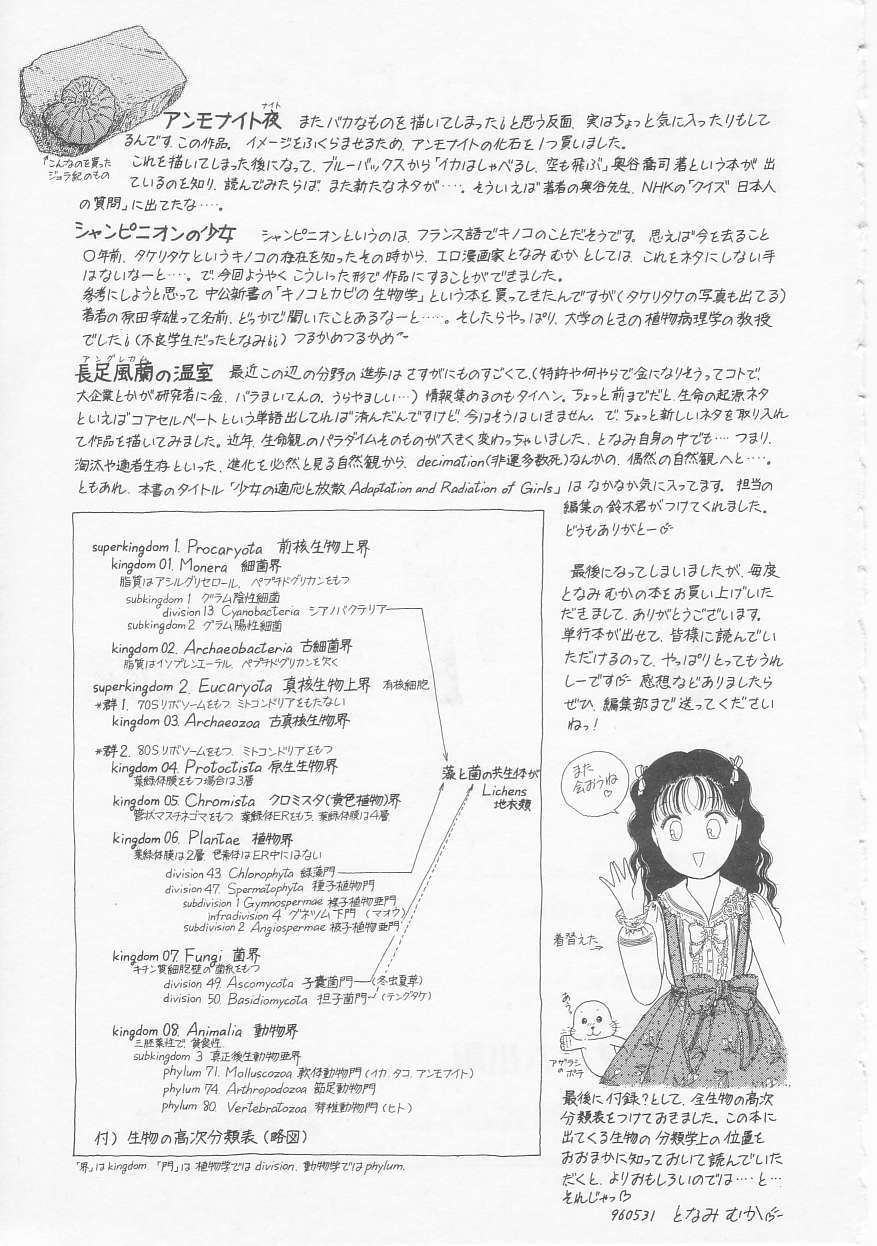 アンモナイト夜 またバカなものを描いてしまった!と思う反面、実はちょっと気に入ったりもして
ナイト
るんです、この作品。イメージをふくらませるため、アンモナイトの化石を1つ買いました。
↑こんなのを買った
ジュラ紀のもの
これを描いてしまった後になって、ブルーバックスから「イカはしゃべるし、空も飛ぶ」奥谷喬司著という本が出
ているのを知り、読んでみたらば、また新たなネタが‥‥。そういえば著者の奥谷先生、NHKの「クイズ日本人
の質問」に出てたな‥‥。
シャンピニオンの少女 シャンピニオンというのは、フランス語でキノコのことだそうです。思えば今を去ること
〇年前、タケリタケというキノコの存在を知ったその時から、エロ漫画家となみむかとしては、これをネタにしない手
はないなーと‥‥。で、今回ようやくこういった形で作品にすることができました。
参考にしようと思って中公新書の「キノコとカビの生物学」という本を買ってきたんですが(タケリタケの写真も出てる)
著者の原田幸雄って名前、どっかで聞いたことあるなーと‥‥。そしたらやっぱり、大学のときの植物病理学の教授
でした!(不良学生だったとなみ!!)つるかめつるかめ~
アングレカム
長足風蘭の温室 最近この辺の分野の進歩はさすがにものすごくて、(特許や何やらで金になりそうってコトで、
大企業とかが研究者に金、バラまいてんの、うらやましい…)情報集めるのもタイヘン。ちょっと前までだと、生命の起源ネタ
といえばコアセルベートという単語出してれば済んだんですけど、今はそうはいきません。で、ちょっと新しいネタを取り入れ
て作品を描いてみました。近年、生命観のパラダイムそのものが大きく変わっちゃいました、となみ自身の中でも…つまり、
淘汰や適者生存といった、進化を必然と見る自然観から、decimation(非運多数死)なんかの、偶然の自然観へと‥‥。
ともあれ、本書のタイトル「少女の適応と放散 Adaptation and Radiation of Girls」はなかなか気に入ってます。担当の
編集の鈴木君がつけてくれました。
どうもありがとー
superkingdom 1. Procaryota 前核生物上界
kingdom 01. Monera 細菌界
脂質はアシルグリセロール、ペプチドグリカンをもつ
subkingdom 1 グラム陰性細菌
division 13 Cyanobacteria シアノバクテリア
subkingdom 2 グラム陽性細菌
kingdom 02. Archaeobacteria 古細菌界
脂質はイソプレンエーテル、ペプチドグリカンを欠く
superkingdom 2. Eucaryota 真核生物上界 有核細胞
*群1. 70Sリボソームをもつ、ミトコンドリアをもたない
kingdom 03. Archaeozoa 古真核生物界
*群2. 80Sリボソームをもつ、ミトコンドリアをもつ
kingdom 04. Protoctista 原生生物界
葉緑体膜をもつ場合は3層
kingdom 05. Chromista クロミスタ(黄色植物)界
管状マスチネゴマをもつ、葉緑体ERをもち、葉緑体膜は4層
kingdom 06. Plantae 植物界
葉緑体膜は2層、色素体はER中にはない
division 43 Chlorophyta 緑藻門
division 47. Spermatophyta 種子植物門
subdivision 1 Gymnospermae 裸子植物亜門
infradivision 4 グネツム下門(マオウ)
subdivision 2 Angiospermae 被子植物亜門
kingdom 07. Fungi 菌界
キチン質細胞壁の菌糸をもつ
division 49. Ascomycota 子嚢菌門(冬虫夏草)
division 50. Basidiomycota 担子菌門(テングタケ)
kingdom 08. Animalia 動物界
三胚葉性で、貪食性
subkingdom 3 真正後生動物亜界
phylum 71. Molluscozoa 軟体動物門(イカ、タコ、アンモナイト)
phylum 74. Arthropodozoa 節足動物門
phylum 80. Vertebratozoa 脊椎動物門(ヒト)
藻と菌の共生体が
Lichens
地衣類
付)生物の高次分類表(略図)
「界」はkingdom.「門」は植物学ではdivision、動物学ではphylum.
最後になってしまいましたが、毎度
となみむかの本をお買い上げいた
だきまして、ありがとうございます。
単行本が出せて、皆様に読んでい
ただけるのって、やっぱりとってもうれ
しーです 感想などありましたら
ぜひ、編集部まで送ってください
ねっ!
また
会おうね
♡
着替えた→
あう
アザラシ
のポテ
最後に付録?として、全生物の高次
分類表をつけておきました。この本に
出てくる生物の分類学上の位置を
おおまかに知っておいて読んでいた
だくと、よりおもしろいのでは‥‥と…
それじゃっ
960531 となみむか